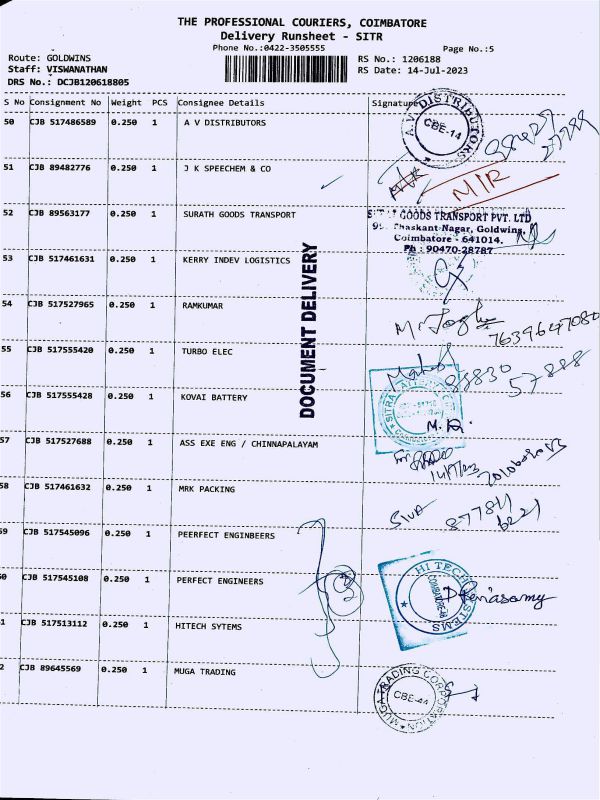 THE PROFESSIONAL COURIERS, COIMBATORE
Delivery Runsheet - SITR
Phone No.:0422-3505555 Page No.:5
Route: GOLDWINS RS No.: 1206188
Staff: VISWANATHAN RS Date: 14-Jul-2023
DRS No.: DCJB120618805
S No Consignment No Weight PCS Consignee Details Signature
50 CJB 517486589 0.250 1 A V DISTRIBUTORS
A.V. DISTRIBUTORS
CBE-14
51 CJB 89482776 0.250 1 J K SPEECHEM & CO
M/R
52 CJB 89563177 0.250 1 SURATH GOODS TRANSPORT
GOODS TRANSPORT PVT. LTD
Bhaskant Nagar, Goldwins,
Coimbatore - 641014.
Ph : 90470-28787
53 CJB 517461631 0.250 1 KERRY INDEV LOGISTICS
DOCUMENT DELIVERY
54 CJB 517527965 0.250 1 RAMKUMAR
7639647080
55 CJB 517555420 0.250 1 TURBO ELEC
88830
57888
56 CJB 517555428 0.250 1 KOVAI BATTERY
57 CJB 517527688 0.250 1 ASS EXE ENG / CHINNAPALAYAM
58 CJB 517461632 0.250 1 MRK PACKING
Siva 877811
6221
59 CJB 517545096 0.250 1 PEERFECT ENGINBEERS
60 CJB 517545108 0.250 1 PERFECT ENGINEERS
HI TECH SYSTEMS
1 CJB 517513112 0.250 1 HITECH SYTEMS
2 CJB 89645569 0.250 1 MUGA TRADING
MUGA TRADING CORPORATION
CBE-44